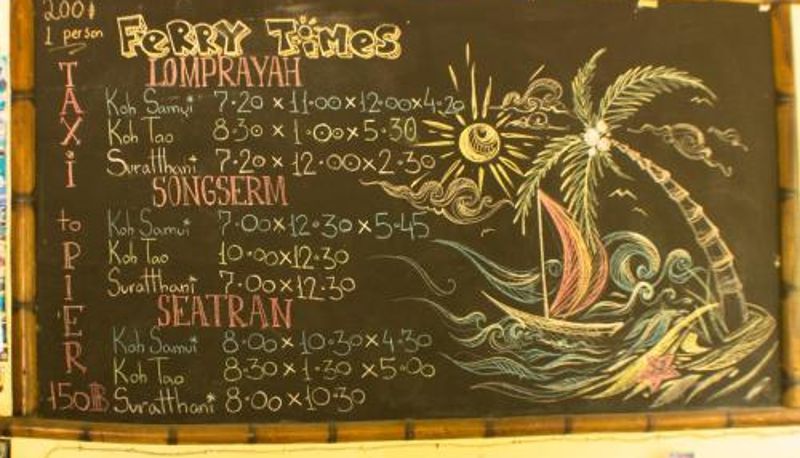 200฿
1 person
FeRRY TiMeS
TAXi
to
PIER
150฿
LOMPRAYAH
Koh Samui 7·20 × 11·00 × 12·00 × 4·20
Koh Tao 8·30 × 1·00 × 5·30
Suratthani 7·20 × 12·00 × 2·30
SONGSERM
Koh Samui 7·00 × 12·30 × 5·45
Koh Tao 10·00 × 12·30
Suratthani 7·00 × 12·30
SEATRAN
Koh Samui 8·00 × 10·30 × 4·30
Koh Tao 8·30 × 1·30 × 5·00
Suratthani 8·00 × 10·30